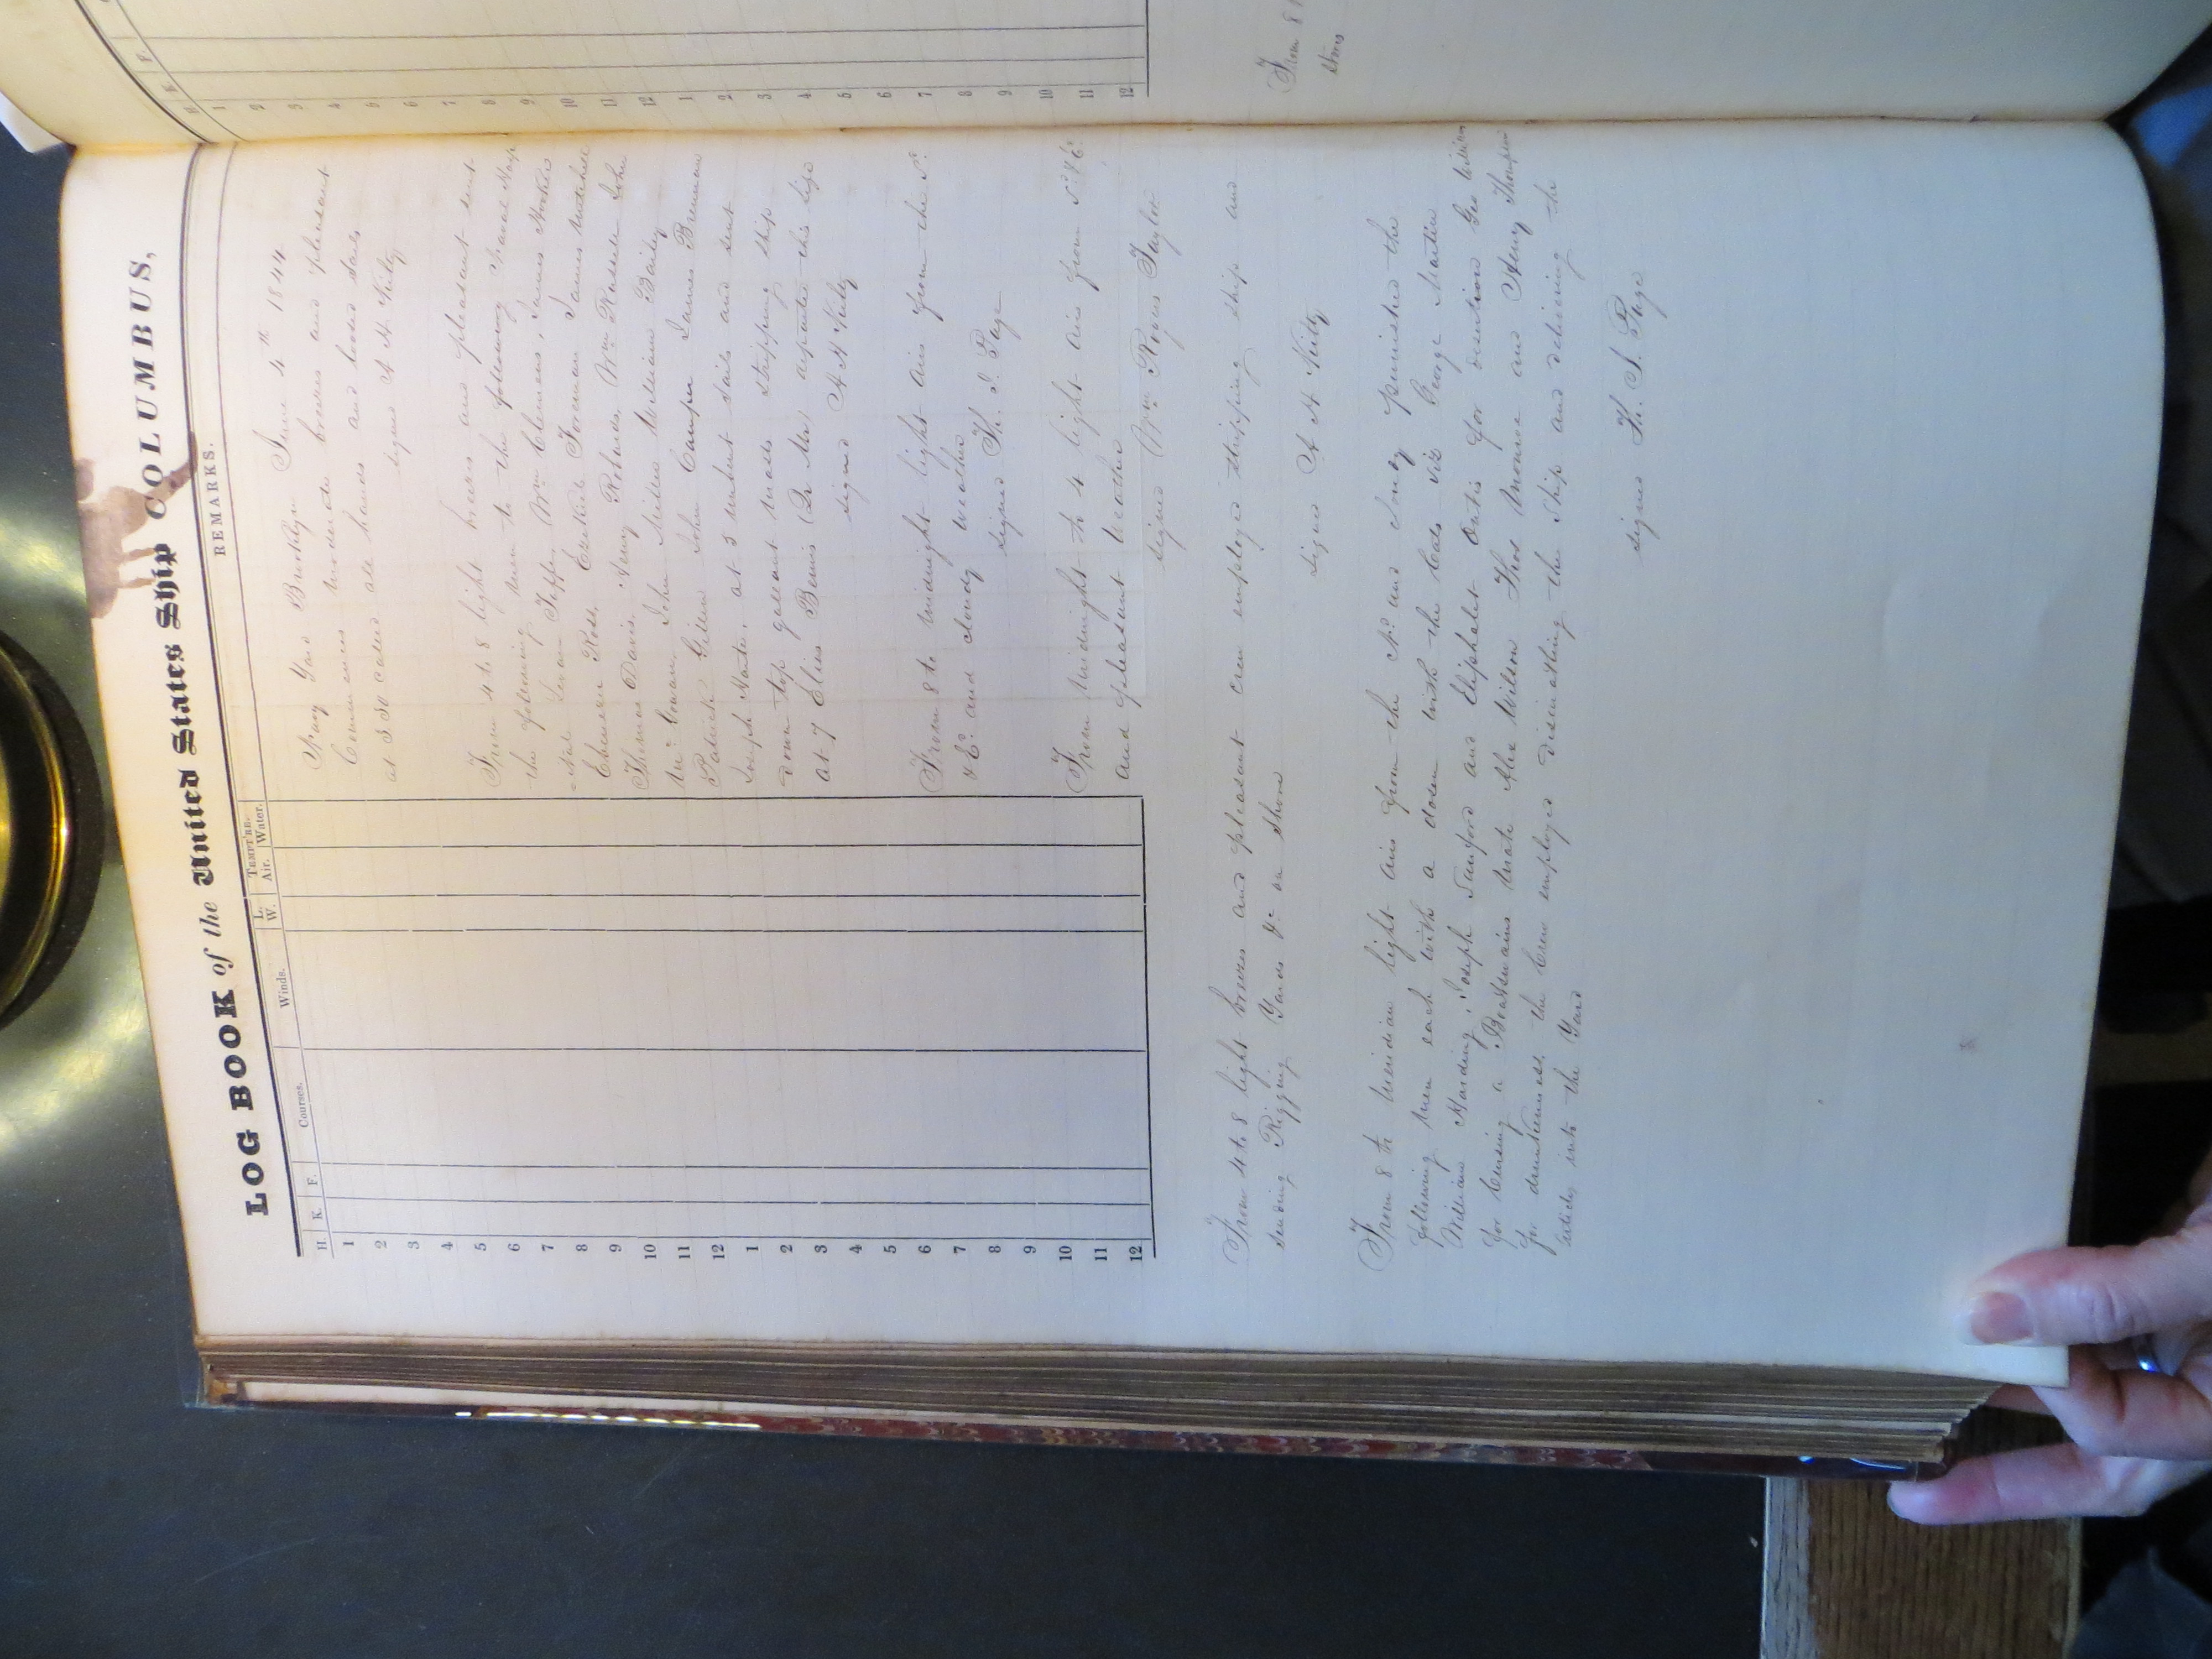 LOG BOOK of the United States Ship COLUMBUS,
H. K. F. Courses. Winds. L. W. TEMPT'RE. Air. Water. REMARKS.
1
2
3
4
5
6
7
8
9
10
11
12
1
2
3
4
5
6
7
8
9
10
11
12
Navy Yard Brooklyn June 4th 1844
Commences moderate breezes and pleasant
at 3 30 called all hands and loosed sails
signed A H Kilty
From 4 to 8 light breezes and pleasant sent
the following men to the following
Levan Wm Clemens, James
Ebenezer Ross, Ezekiel Foreman James Mitchell
Thomas Davis, Henry Roberts, Wm Russell John
John Miller William Bailey
Patrick Gillen John Camper James Brennan
Joseph at 5 unbent sails and sent
down top gallant masts stripping ship
at 7 Elias Bemis (Qr Mr) reported this life
signed A H Kilty
From 8 to Midnight light airs from the Sd
& Ed and cloudy weather
signed Th. J. Page
From Midnight to 4 light airs from Sd & Ed
and pleasant weather
signed Wm Rogers Taylor
From 4 to 8 light breezes and pleasant crew employed stripping ship and
sending Rigging Yards &c on Shore
signed A H Kilty
From 8 to Meridian light airs from the Nd and punished the
following men each with a dozen with the Cats viz George Martin
William Harding, Joseph Sanford and Eliphalet Ortis for desertion Geo
for a Boatswains Mate Alex Wilson Thos Monroe and Henry Thompson
for drunkenness. the Crew employed dismantling the Ship and delivering the
articles into the Yard
signed Th. J. Page
H. K. F.
1
2
3
4
5
6
7
8
9
10
11
12
1
2
3
4
5
6
7
8
9
10
11
12
From 8